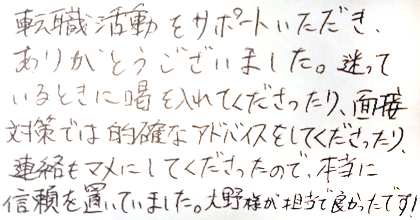 転職活動をサポートいただき、
ありがとうございました。迷って
いるときに喝を入れてくださったり、面接
対策では的確なアドバイスをしてくださったり、
連絡もマメにしてくださったので、本当に
信頼を置いていました。大野様が担当で良かったです!